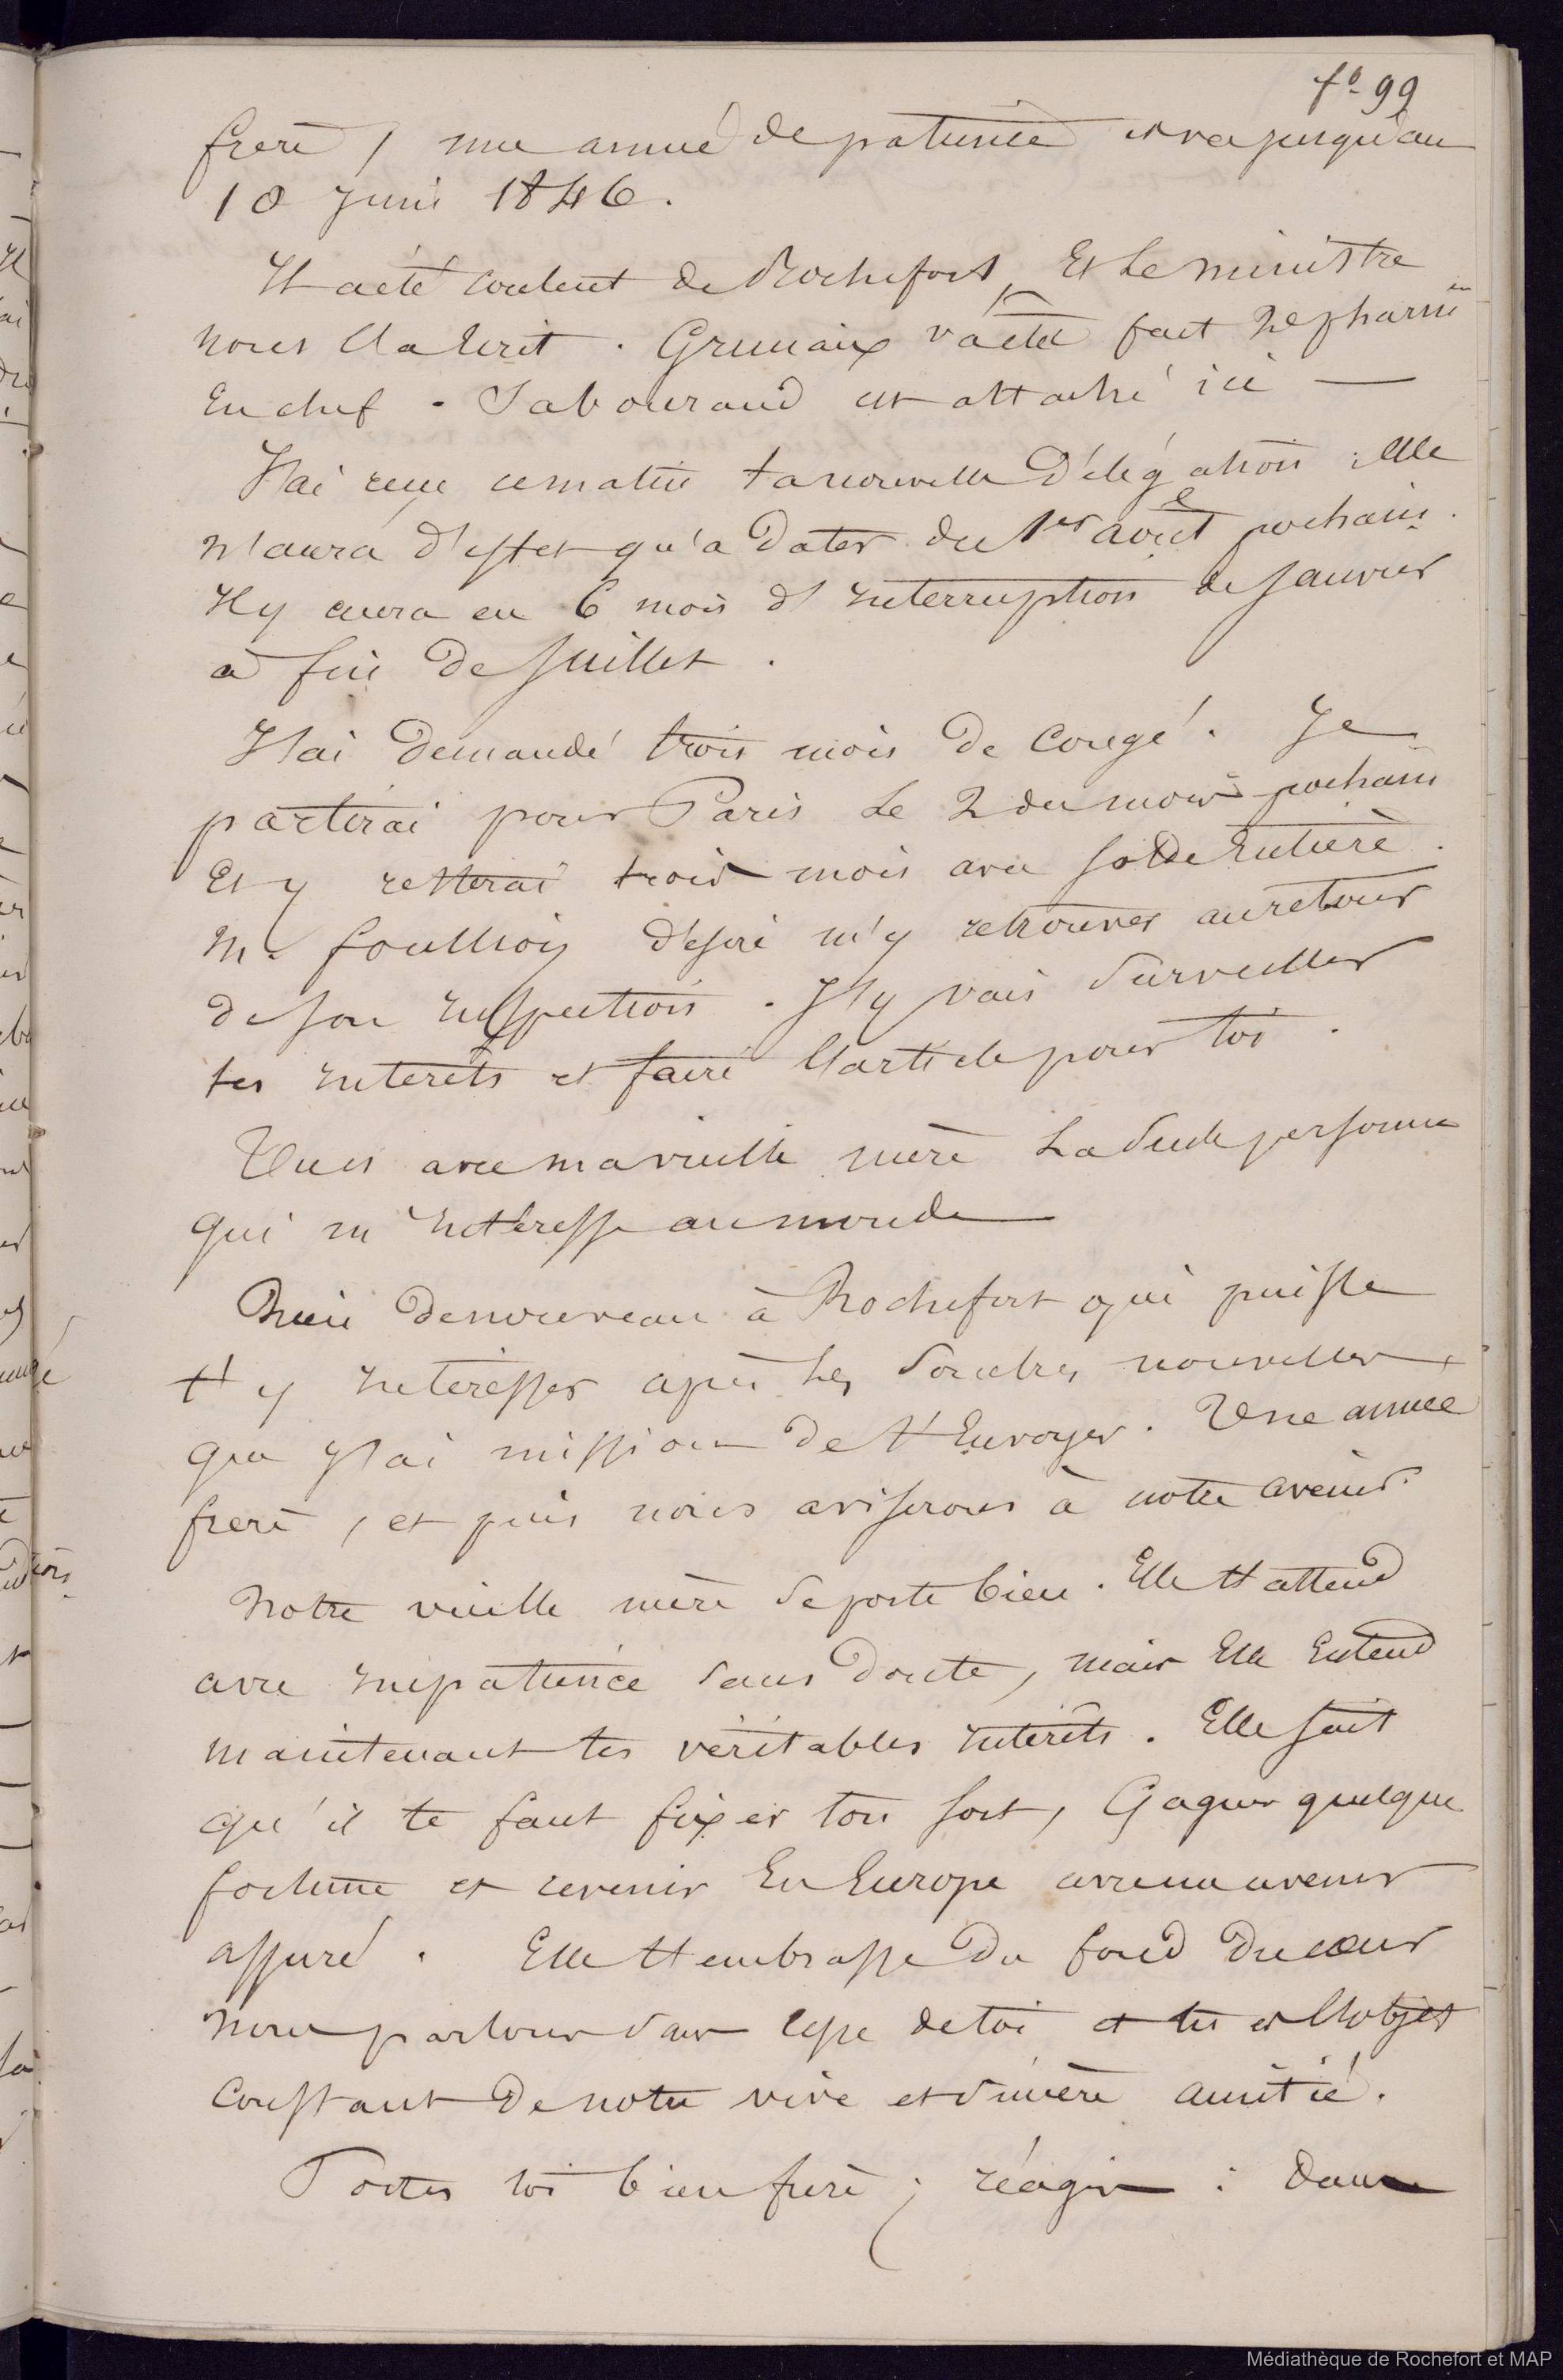 fo 99
frere, une année de patience et va jusqu'au
10 Juin 1846.
Il a été content de Rochefort, Et Le ministre
nous l'a écrit. va été fait 2e pharmien
En chef. Sabouraud est attaché ici —
J'ai reçu ce matin ta nouvelle Délégation : elle
n'aura d'effet qu'à Dater du 1er aoüt prochain.
Il y aura eu 6 mois d'interruption de Janvier
à fin De Juillet.
J'ai Demandé trois mois De Congé. Je
partirai pour Paris Le 2 du mois prochain
Et y resterai trois mois avec solde Entière.
M. Foullioy desire m'y retrouver au retour
de son inspection. J'y vais Surveiller
tes interêts et faire l'article pour toi.
Tu es avec ma vieille mère La Seule personne
qui m'intéresse au monde
Rien De nouveau à Rochefort qui puisse
t'y intéresser après Les nouvelles
que j'ai mission De t'Envoyer. Une année
frere, et puis nous aviserons à notre avenir.
Notre vieille mère Se porte bien. Elle t'attend
avec impatience Sans Doute, mais Elle Entend
maintenant tes véritables intérêts. Elle sait
qu'il te faut fixer ton sort, Gagner quelque
fortune et revenir En Europe avec un avenir
assuré. Elle t'embrasse Du fond Du cœur
Nous parlons Sans cesse de toi et tu es l'objet
constant De notre vive et Sincère amitié.
Portes toi bien frere ; réagis : Dans
Médiathèque de Rochefort et MAP